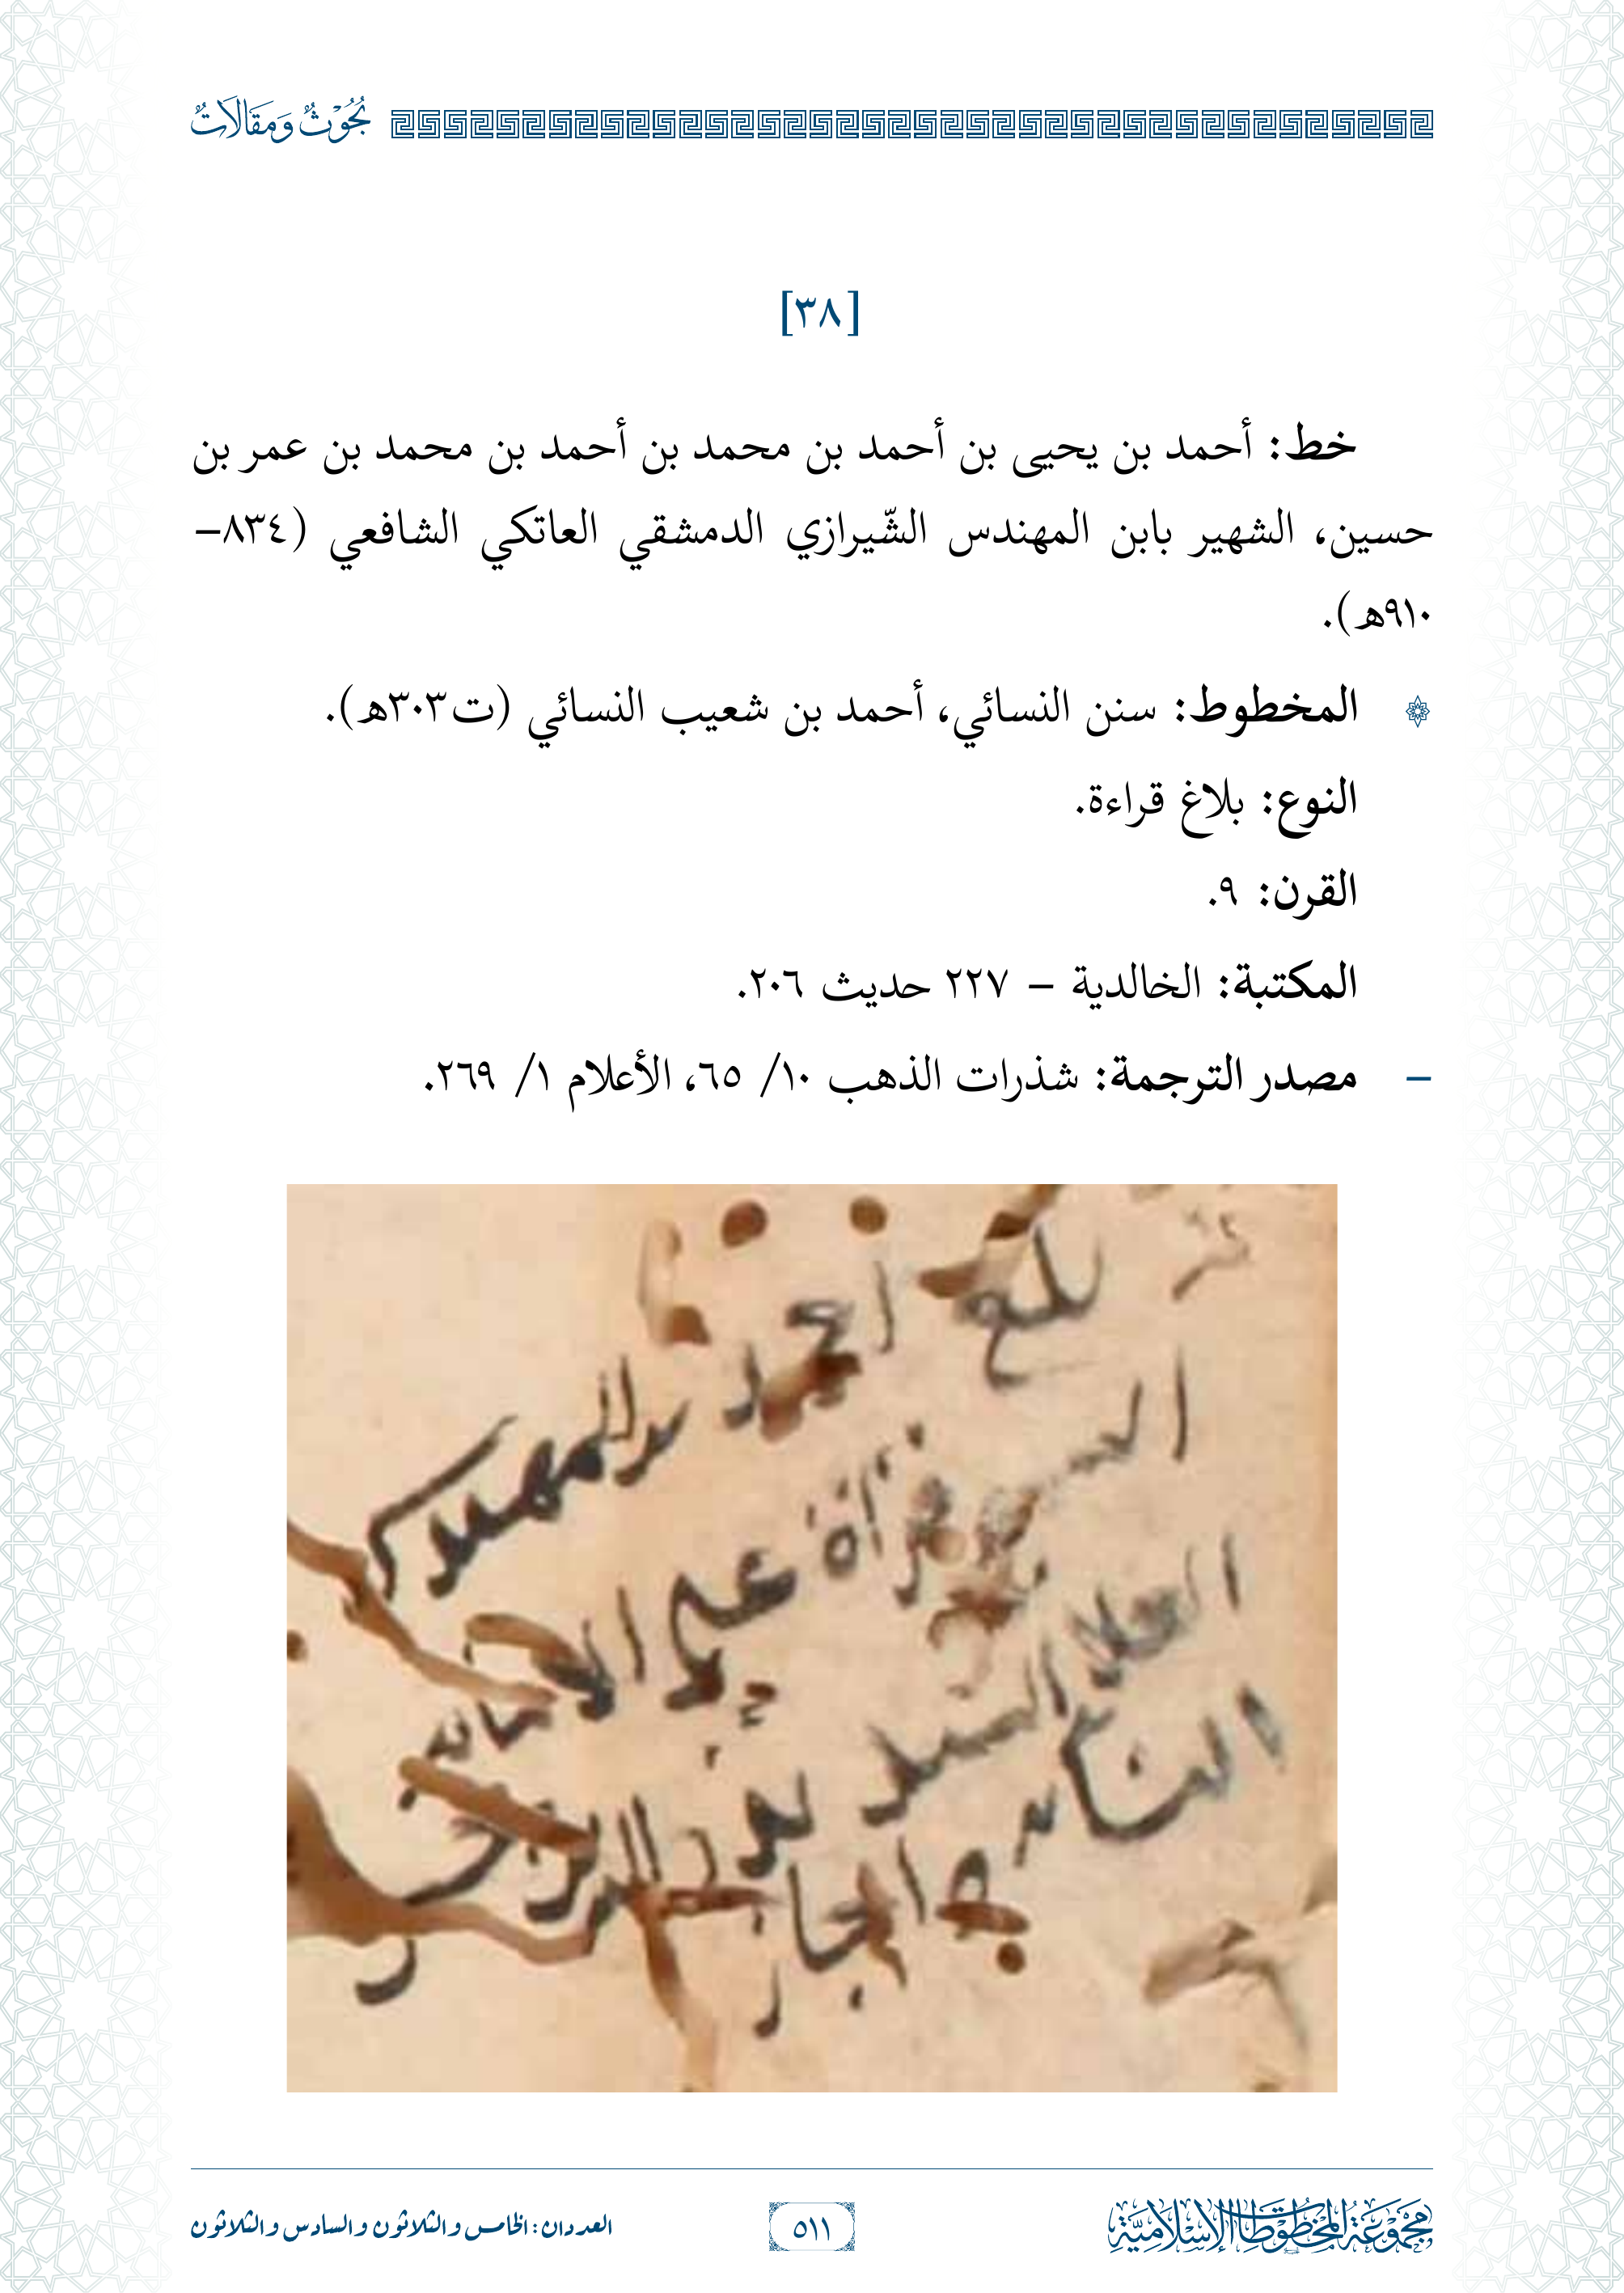 بُحُوْثٌ وَمَقَالَاتٌ
[٣٨]
خط: أحمد بن يحيى بن أحمد بن محمد بن أحمد بن محمد بن عمر بن
حسين، الشهير بابن المهندس الشّيرازي الدمشقي العاتكي الشافعي (٨٣٤–
٩١٠هـ).
المخطوط: سنن النسائي، أحمد بن شعيب النسائي (ت٣٠٣هـ).
النوع: بلاغ قراءة.
القرن: ٩.
المكتبة: الخالدية – ٢٢٧ حديث ٢٠٦.
– مصدر الترجمة: شذرات الذهب ١٠/ ٦٥، الأعلام ١/ ٢٦٩.
بلغ احمد بن المهندس
قراة على
العلا السيد
مَجْمُوعَةُ المَخْطُوطَاتِ الإِسْلَامِيَّةِ
٥١١
العددان: الخامس والثلاثون والسادس والثلاثون